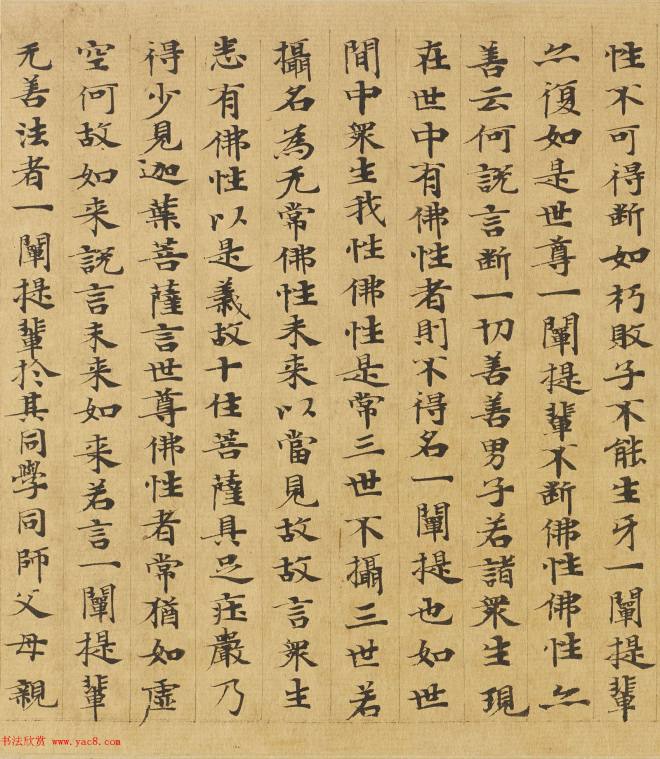 性不可得断如朽敗子不能生牙一闡提輩
亦復如是世尊一闡提輩不断佛性佛性亦
善云何說言断一切善善男子若諸衆生現
在世中有佛性者則不得名一闡提也如世
間中衆生我性佛性是常三世不攝三世若
攝名為无常佛性未来以當見故故言衆生
悉有佛性以是義故十住菩薩具足莊嚴乃
得少見迦葉菩薩言世尊佛性者常猶如虛
空何故如来說言未来如来若言一闡提輩
无善法者一闡提輩於其同學同師父母親
书法欣赏 www.yac8.com